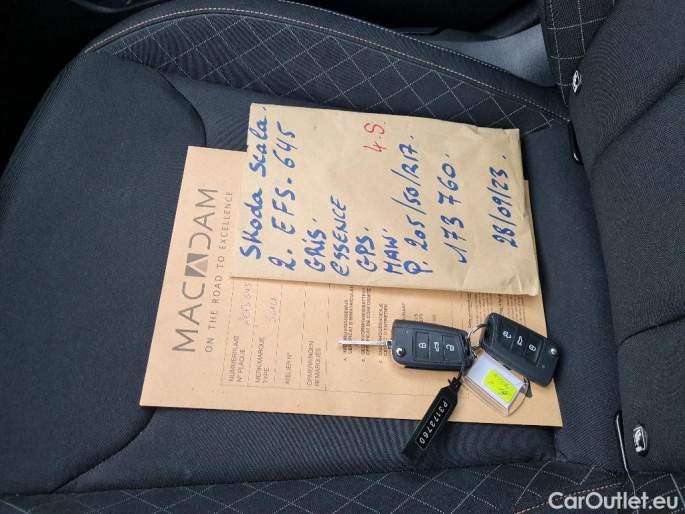 Skoda Scala.
2. EFS. 645
GRIS.
ESSENCE
GPS. 4.S.
MAN.
P. 205/50/R17.
173 760.
28/09/23.
MACADAM
ON THE ROAD TO EXCELLENCE
NUMMERPLAAT
N° PLAQUE
MERK/MARQUE
TYPE
ATELIER N°
OPMERKINGEN
REMARQUES
P3173760
CarOutlet.eu